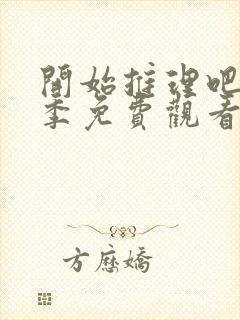 開始推理吧
季免費觀看
方應嬌